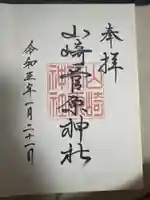 奉拝
山崎菅原神社
山崎
神社
令和五年一月二十一日